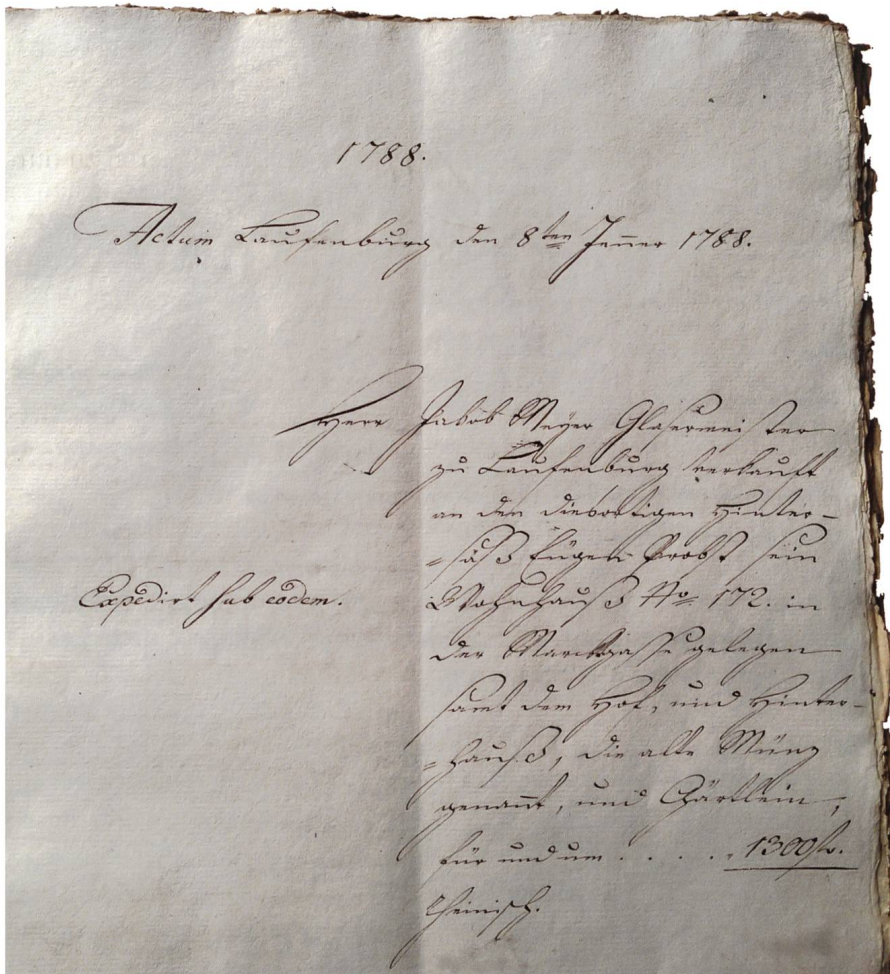 1788.
Actum Laufenburg den 8ten Jenner 1788.
Herr Jakob Meyer Glasermeister
zu Laufenburg verkauft
an den diesortigen Hinter-
=säß Eugeni Probst sein
Expedirt sub eodem.
Wohnhauß No 172. in
der Marcktgasse gelegen
samt dem Hof, und Hinter-
=hauß, die alte Müntz
genannt, und Gärtlein,
für und um . . . . 1300 fl.
Rheinisch.